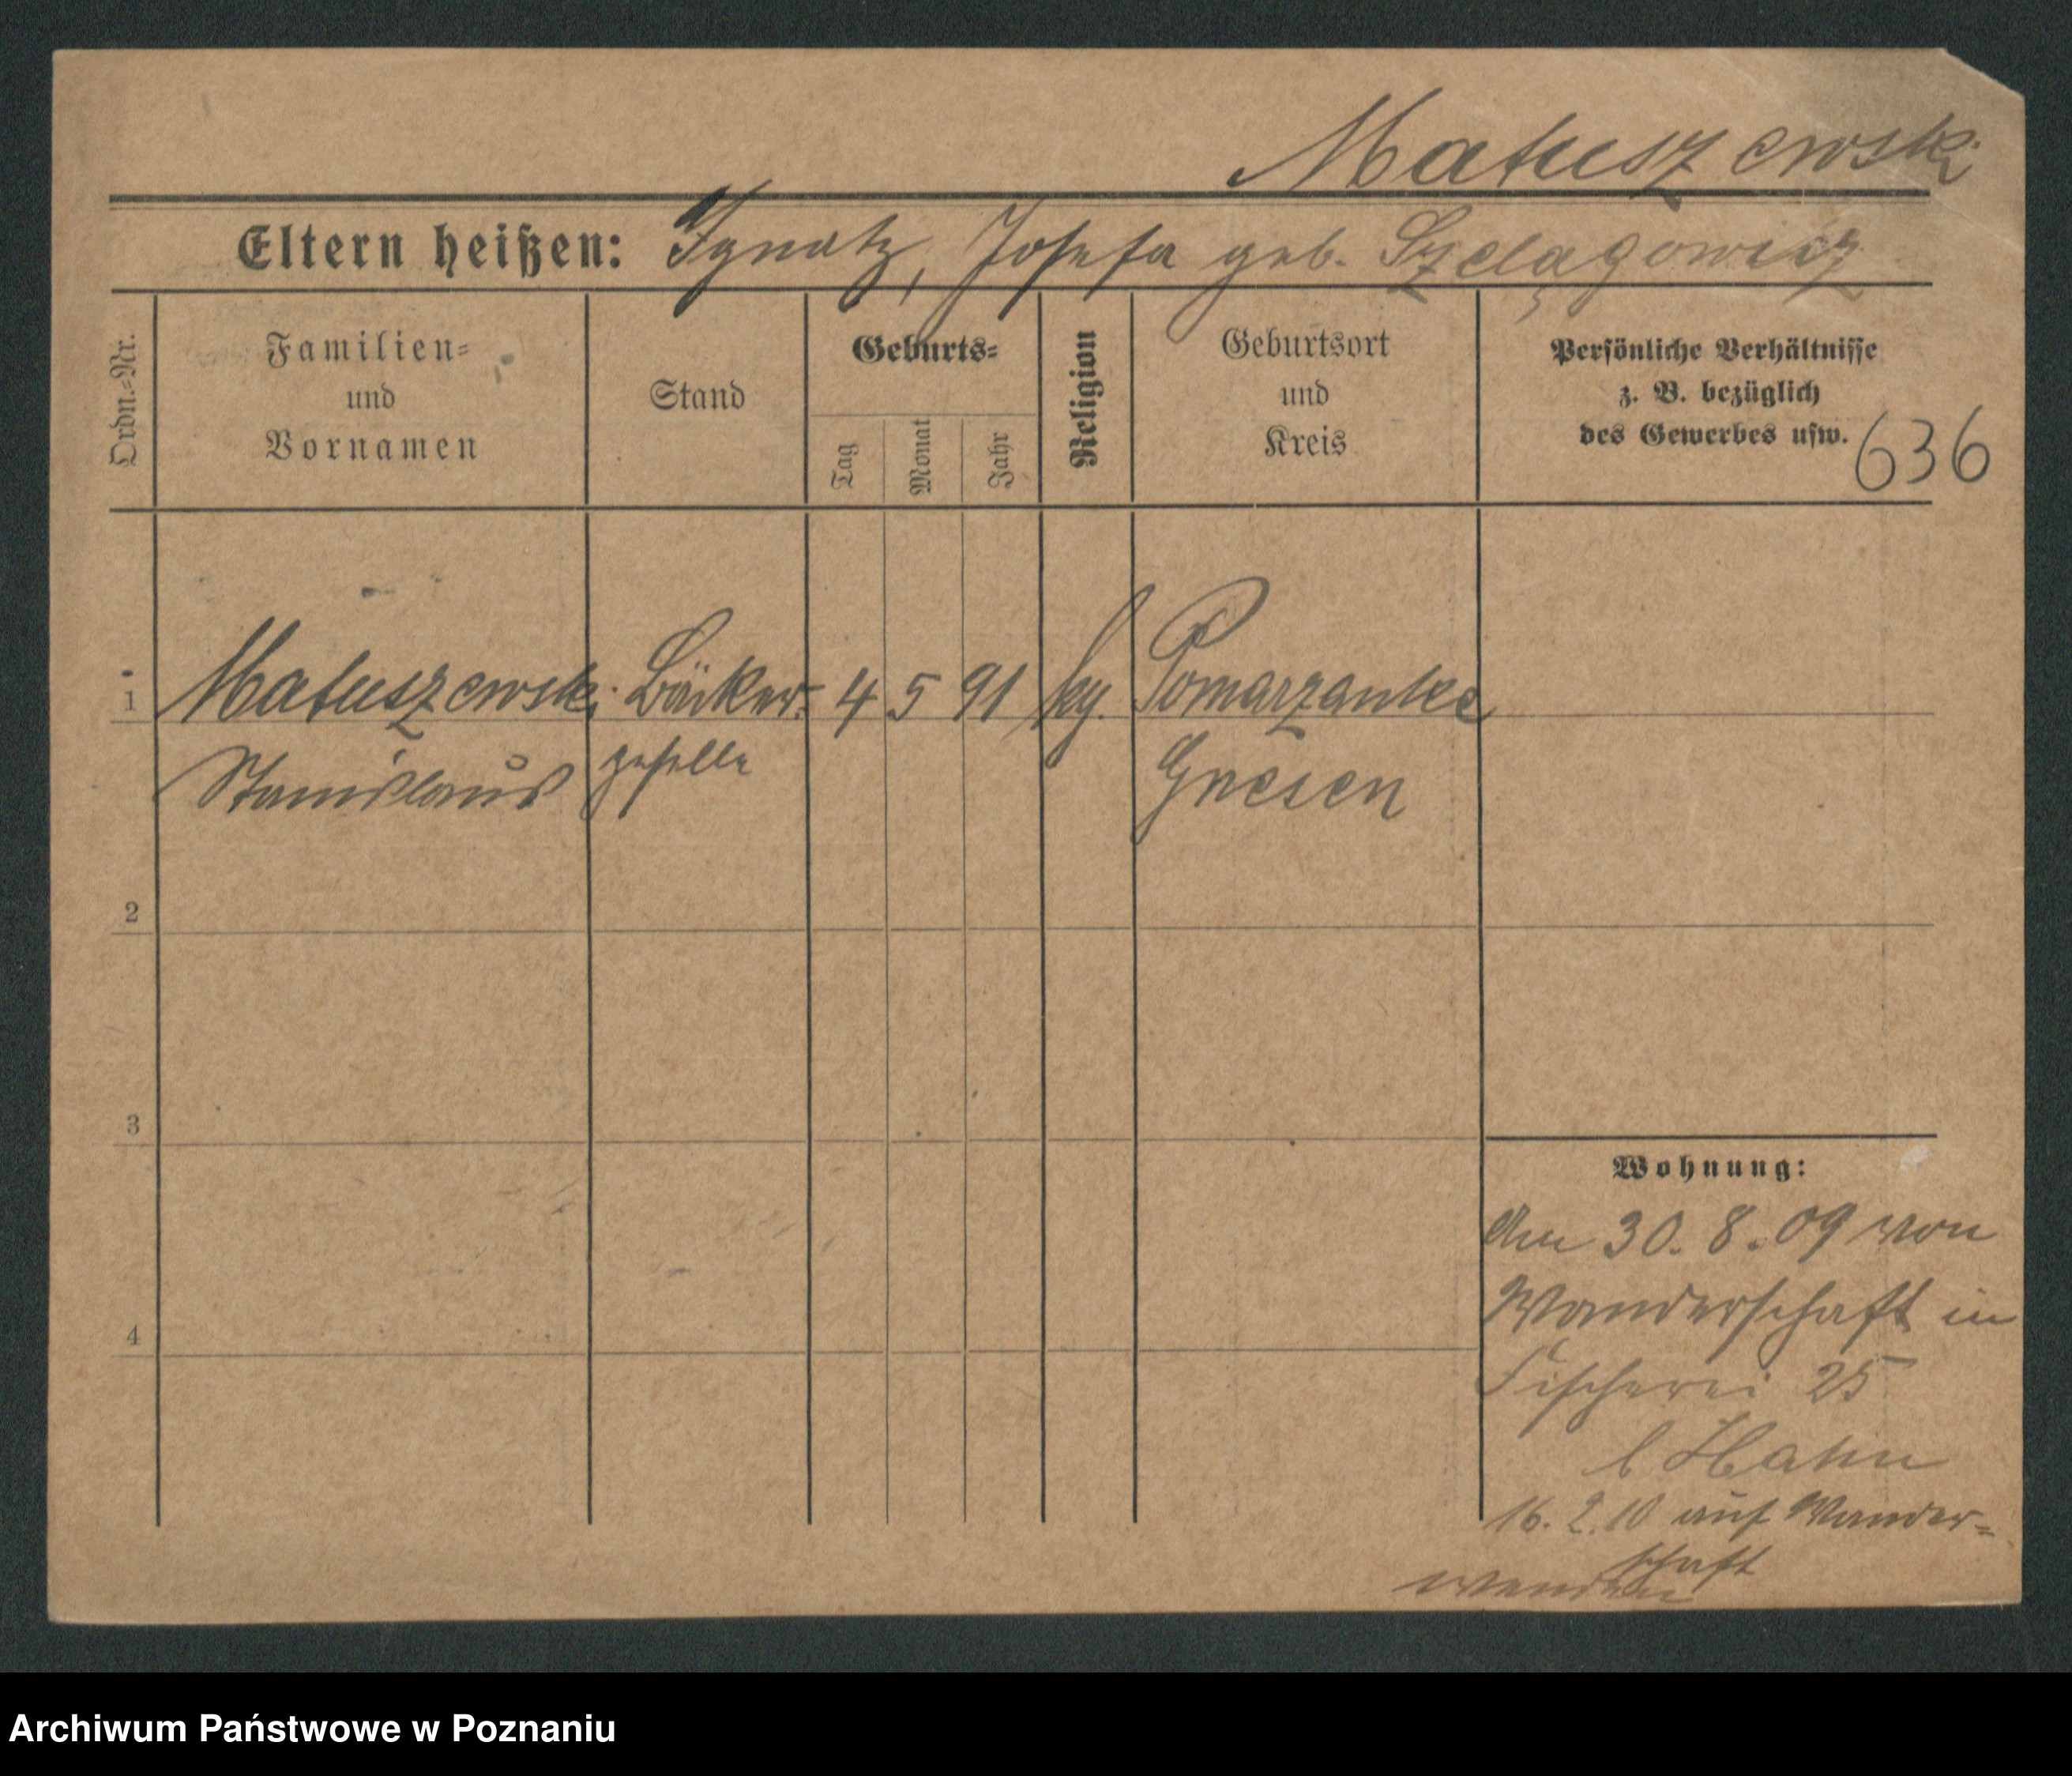 Matuszewski
Eltern heißen: Ignatz, Josefa geb. Szelągowicz
Ordn.-Nr.
Familien-
und
Vornamen
Stand
Geburts-
Tag
Monat
Jahr
Religion
Geburtsort
und
Kreis
Persönliche Verhältnisse
z. B. bezüglich
des Gewerbes usw.
636
1 Matuszewski Bäcker- 4 5 91 kg. Pomarzanke
Stanislaus geselle Gnesen
2
3
4
Wohnung:
Am 30. 8. 09 von
Wanderschaft in
Fischerei 25
b Hahn
16. 2. 10 auf Wander-
schaft
wenden
Archiwum Państwowe w Poznaniu